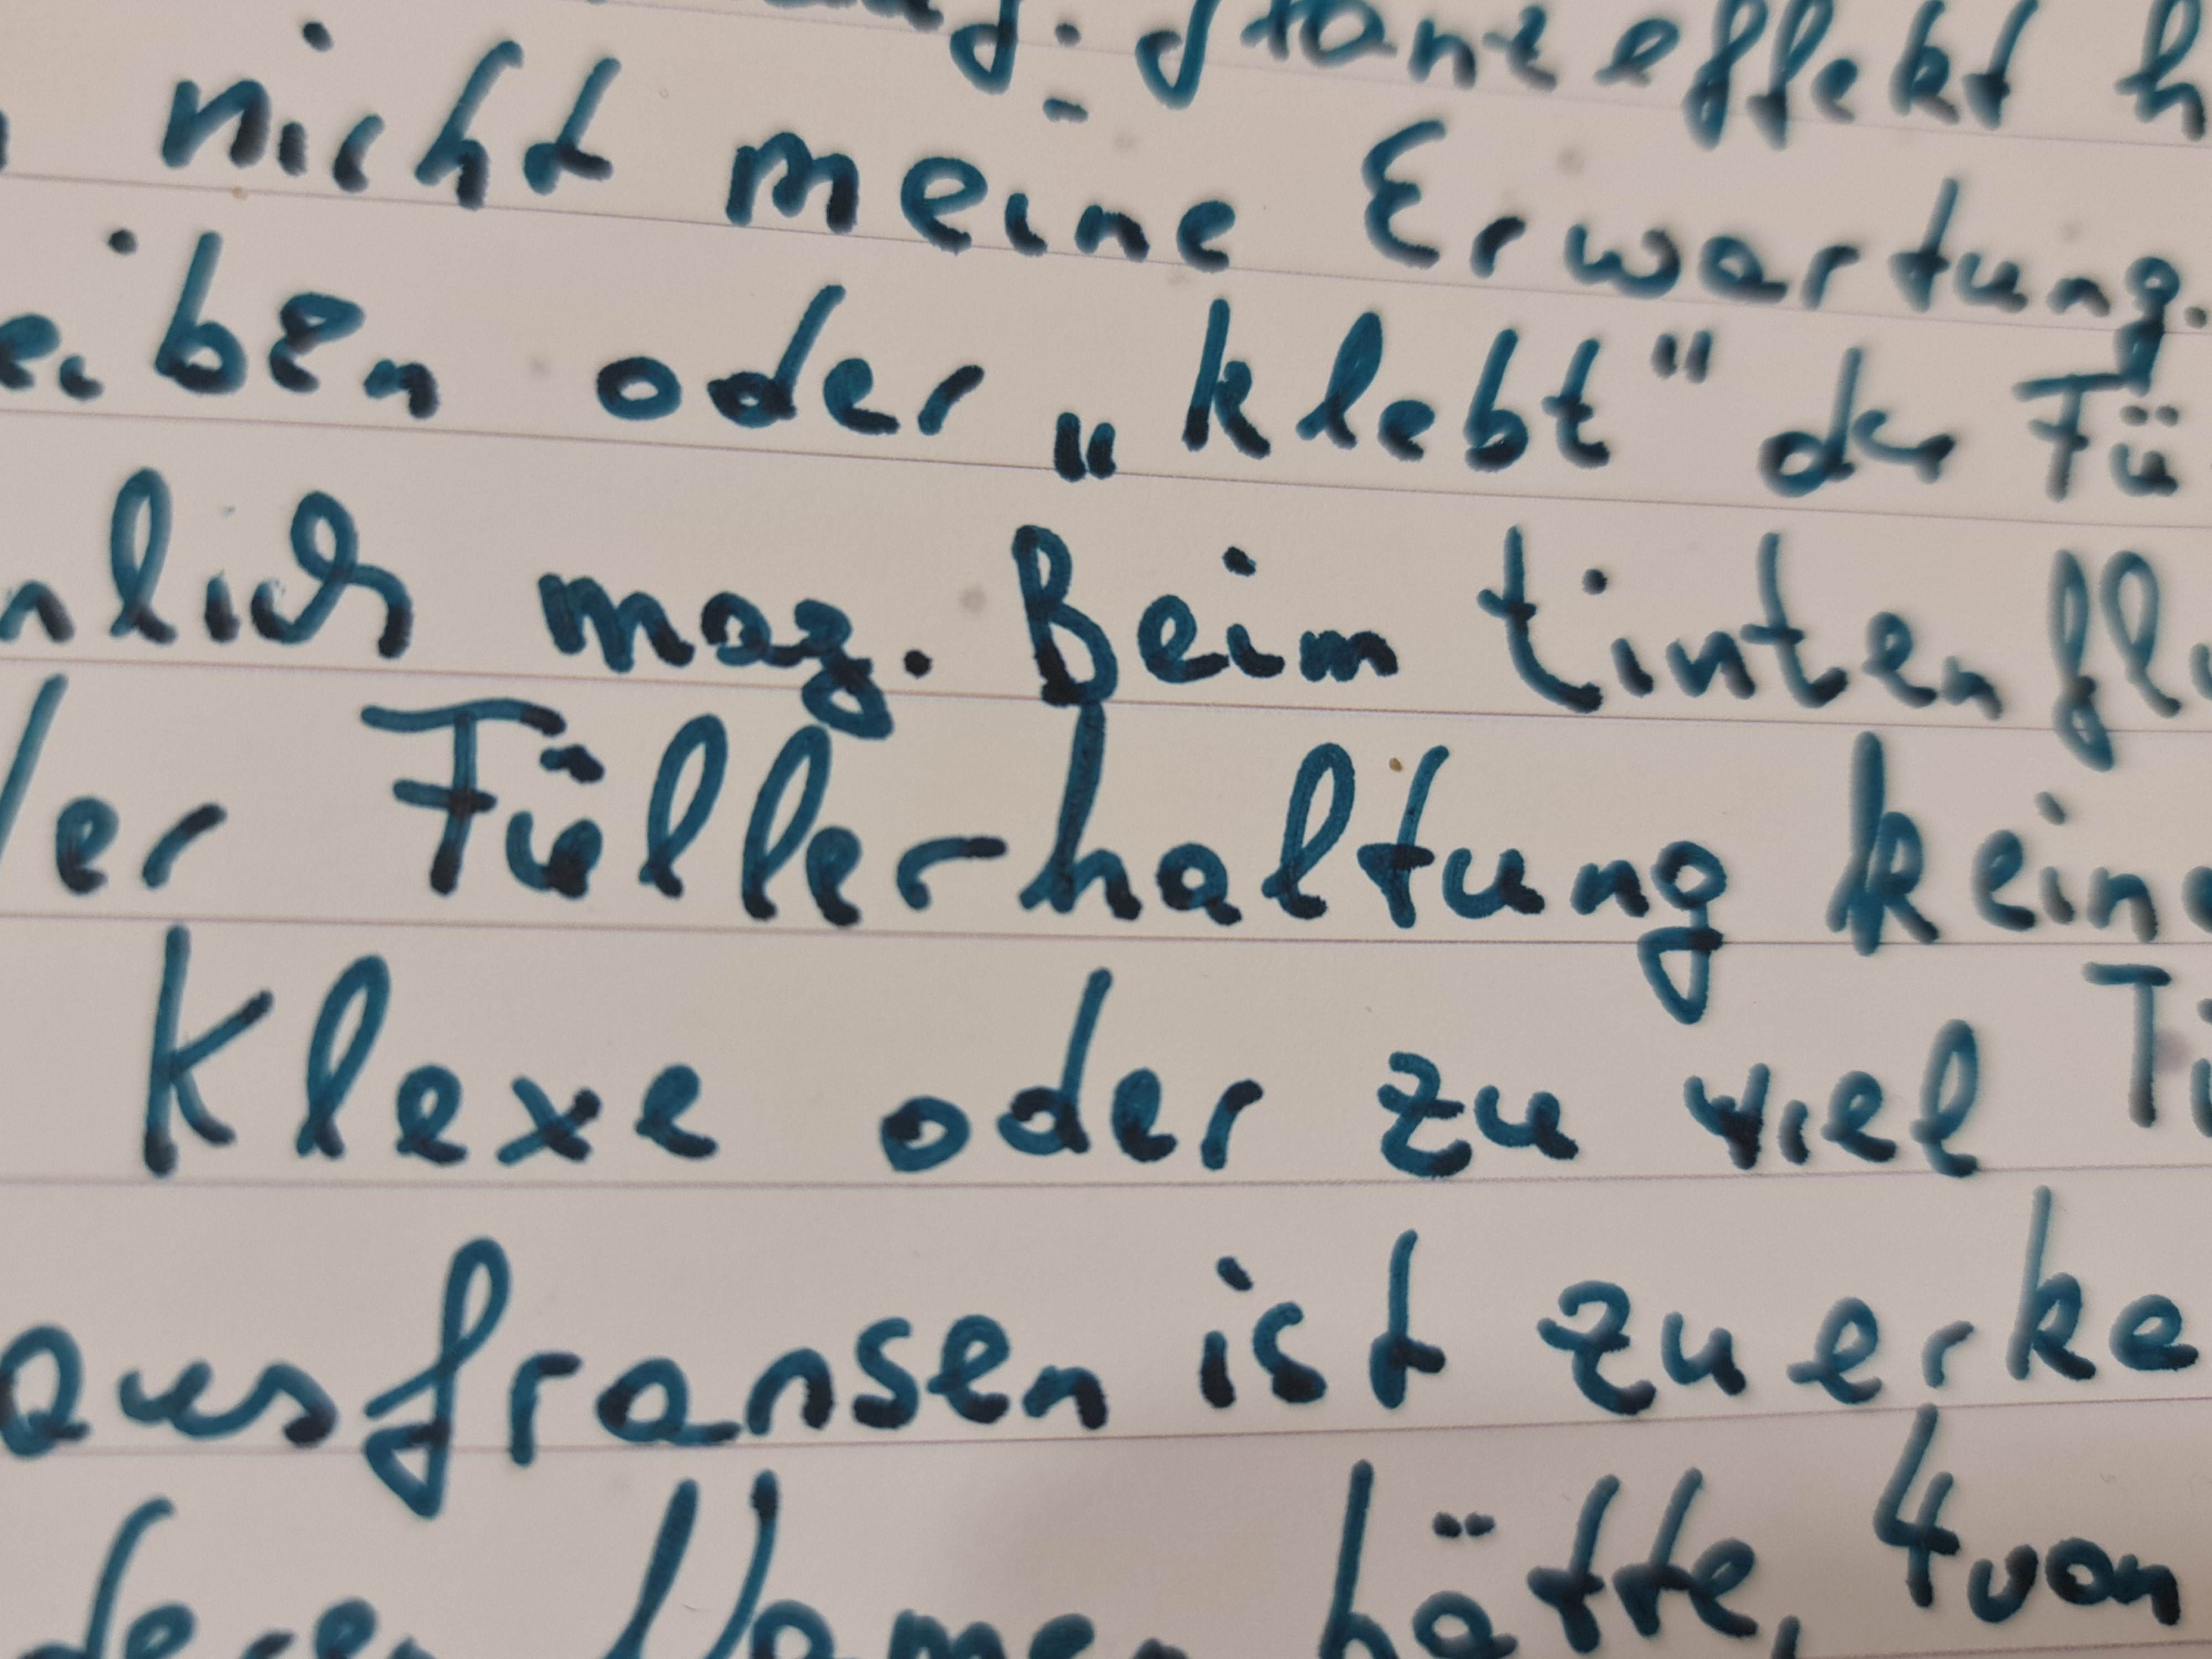 nicht meine Erwartung.
eiben oder „klebt" der Fü
nlich mag. Beim tintenflu
er Füllerhaltung keine
Klexe oder zu viel Ti
ausfransen ist zu erke
hätte, 4 von